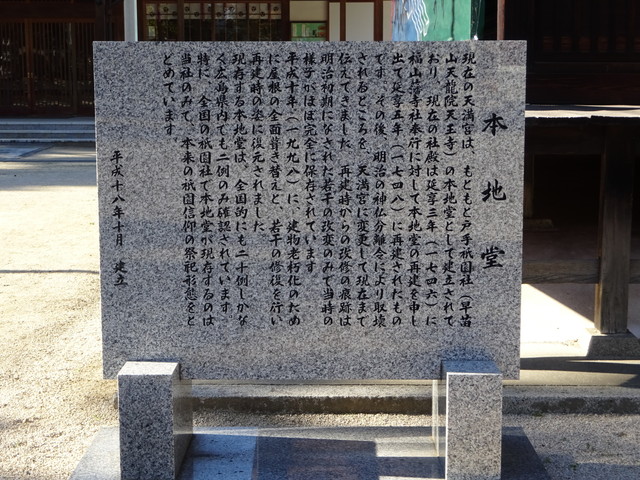 本地堂
現在の天満宮は、もともと戸手祇園社(早苗
山天龍院天王寺)の本地堂として建立されて
おり、現在の社殿は延享三年(一七四六)に
福山藩寺社奉行に対して本地堂の再建を申し
出て延享五年(一七四八)に再建されたもの
です。その後、明治の神仏分離令により取壊
されるところを、天満宮に変更して現在まで
伝えてきました。再建時からの改修の痕跡は
明治初期になされた若干の改変のみで当時の
様子がほぼ完全に保存されています。
平成十年(一九九八)に、建物老朽化のため
に屋根の全面葺き替えと、若干の修復を行い
再建時の姿に復元されました。
現存する本地堂は、全国的にも二十例しかな
く広島県内でも二例のみ確認されています。
特に、全国の祇園社で本地堂が現存するのは
当社のみで、本来の祇園信仰の祭祀形態をと
どめています。
平成十八年十月 建立